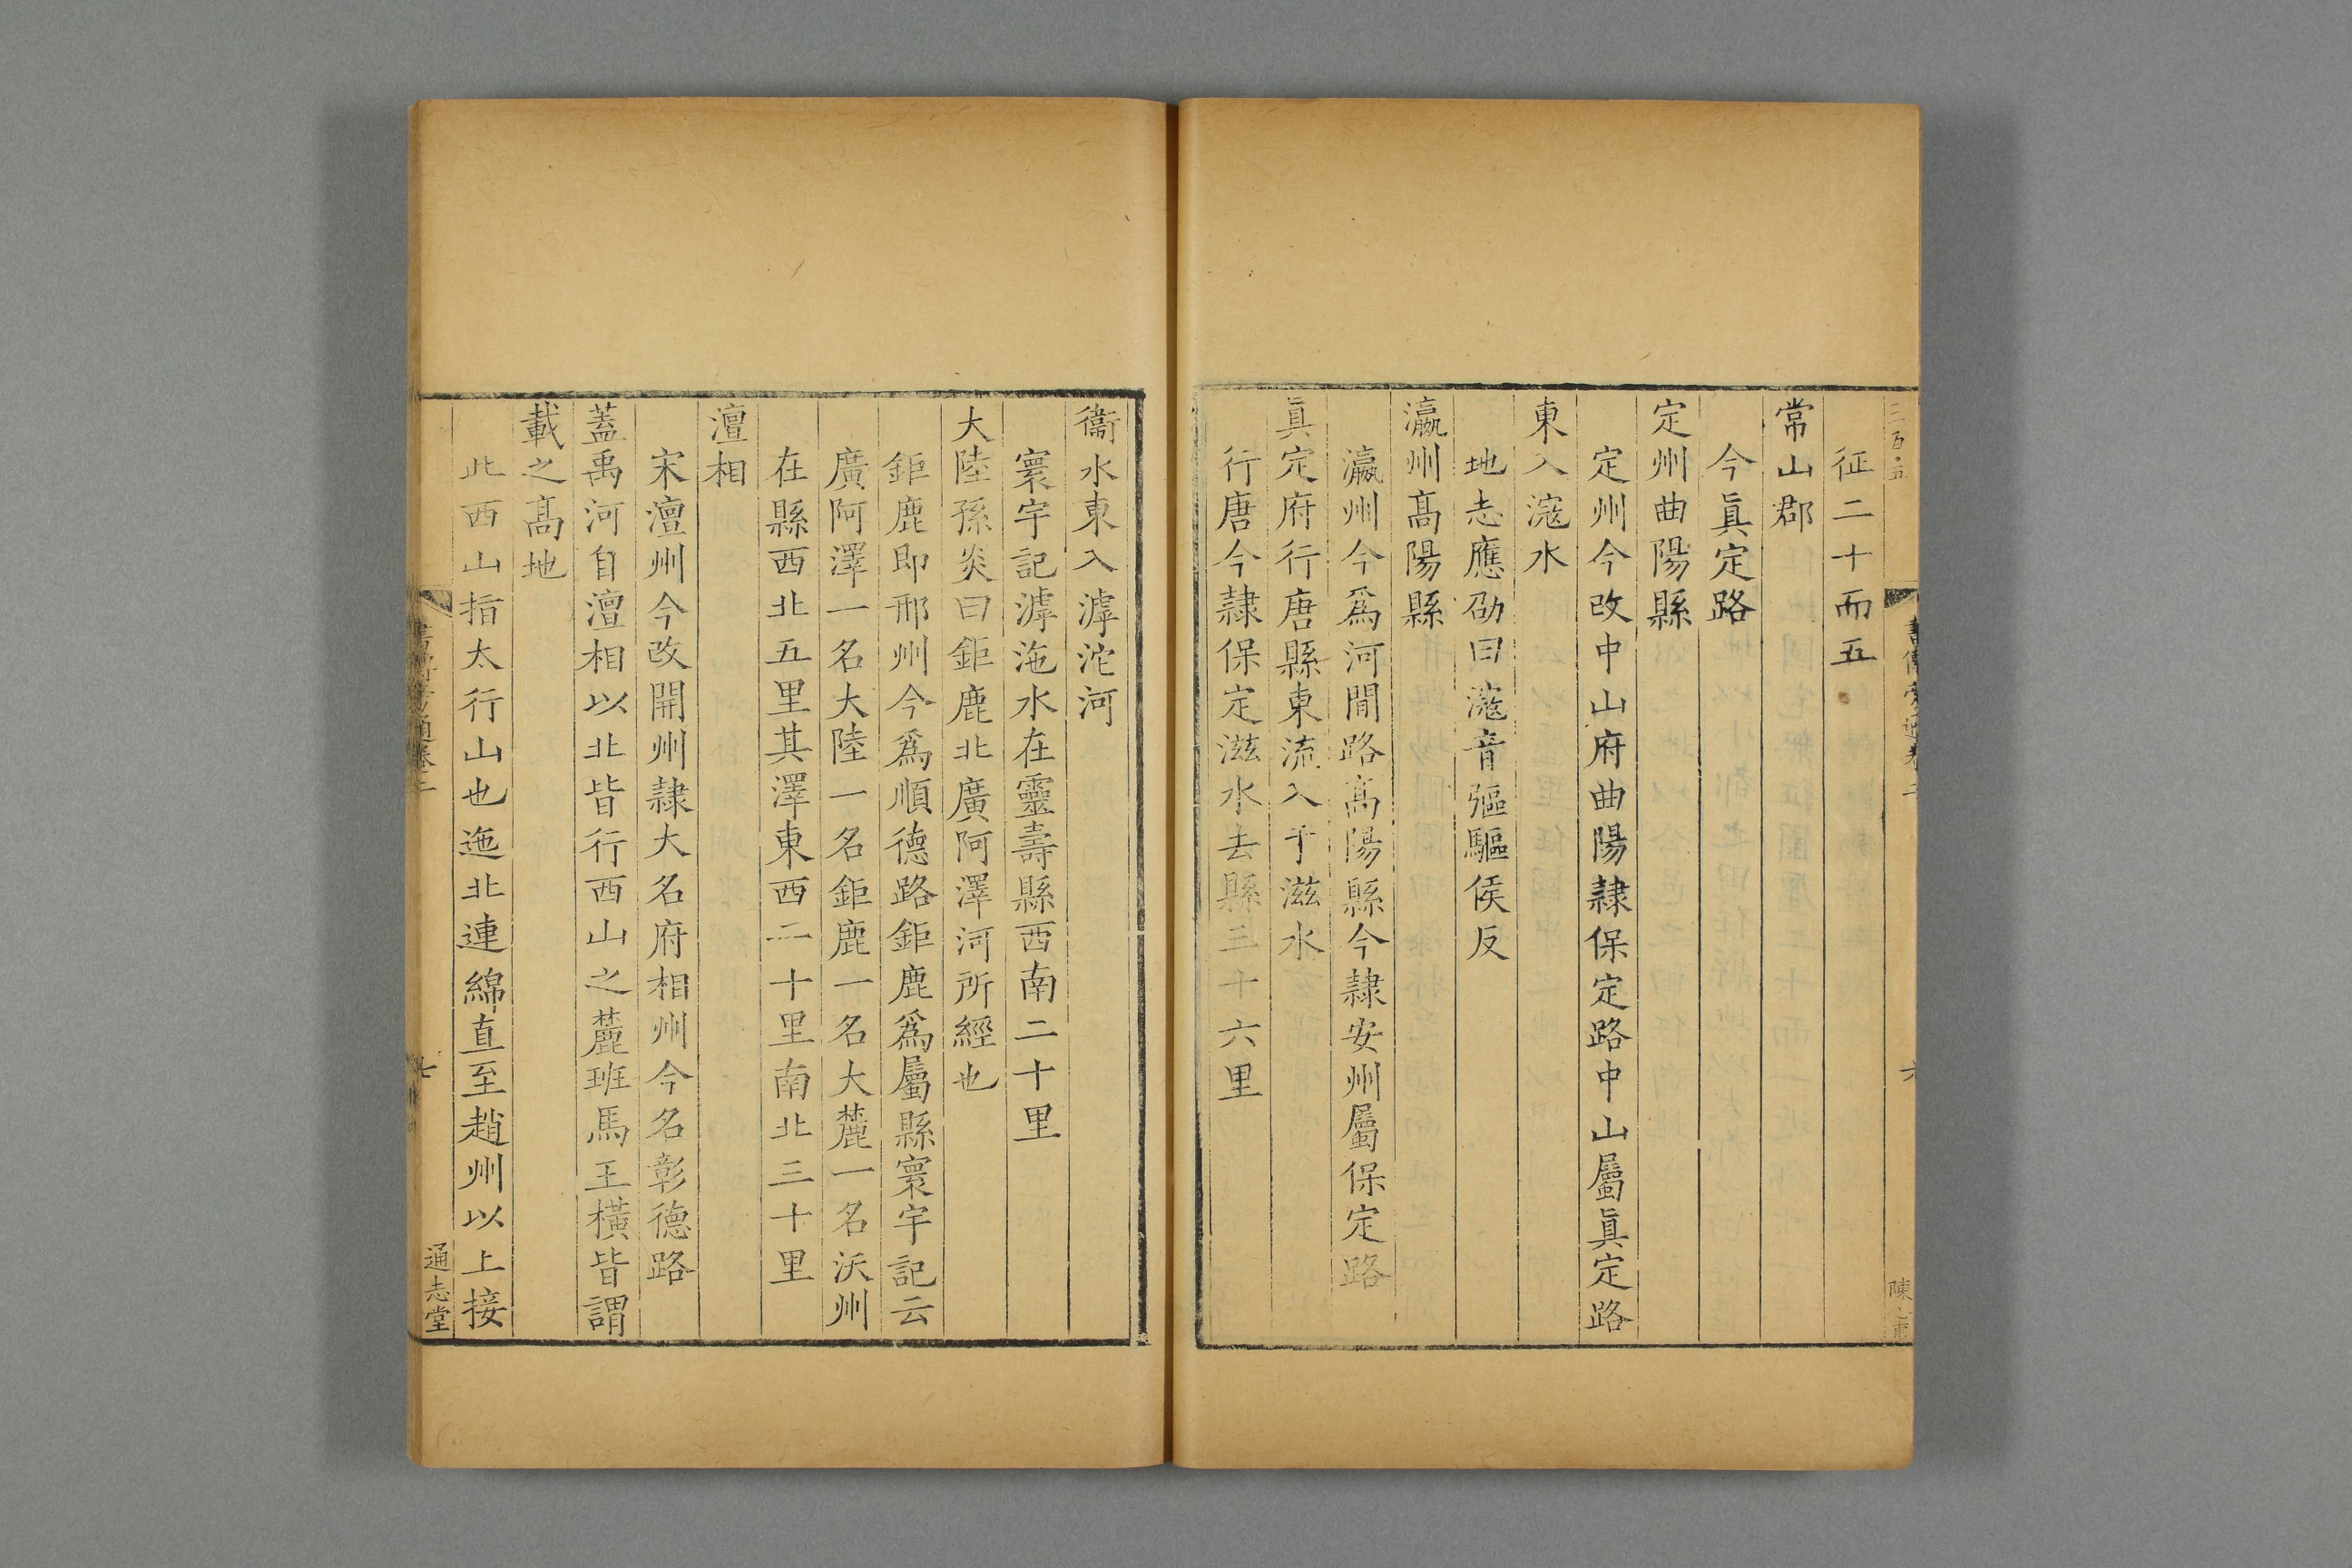 二百五
征二十而五
常山郡
今眞定路
定州曲陽縣
定州今改中山府曲陽隷保定路中山屬眞定路
東入滱水
地志應劭曰滱音彄驅侯反
瀛州髙陽縣
瀛州今爲河間路髙陽縣今隷安州屬保定路
眞定府行唐縣東流入于滋水
行唐今隷保定滋水去縣三十六里
衞水東入滹沱河
寰宇記滹沲水在靈壽縣西南二十里
大陸孫炎曰鉅鹿北廣阿澤河所經也
鉅鹿即邢州今爲順德路鉅鹿爲屬縣寰宇記云
廣阿澤一名大陸一名鉅鹿一名大麓一名沃州
在縣西北五里其澤東西二十里南北三十里
澶相
宋澶州今改開州隷大名府相州今名彰德路
蓋禹河自澶相以北皆行西山之麓班馬王橫皆謂
載之髙地
此西山指太行山也迤北連綿直至趙州以上接
七
通志堂